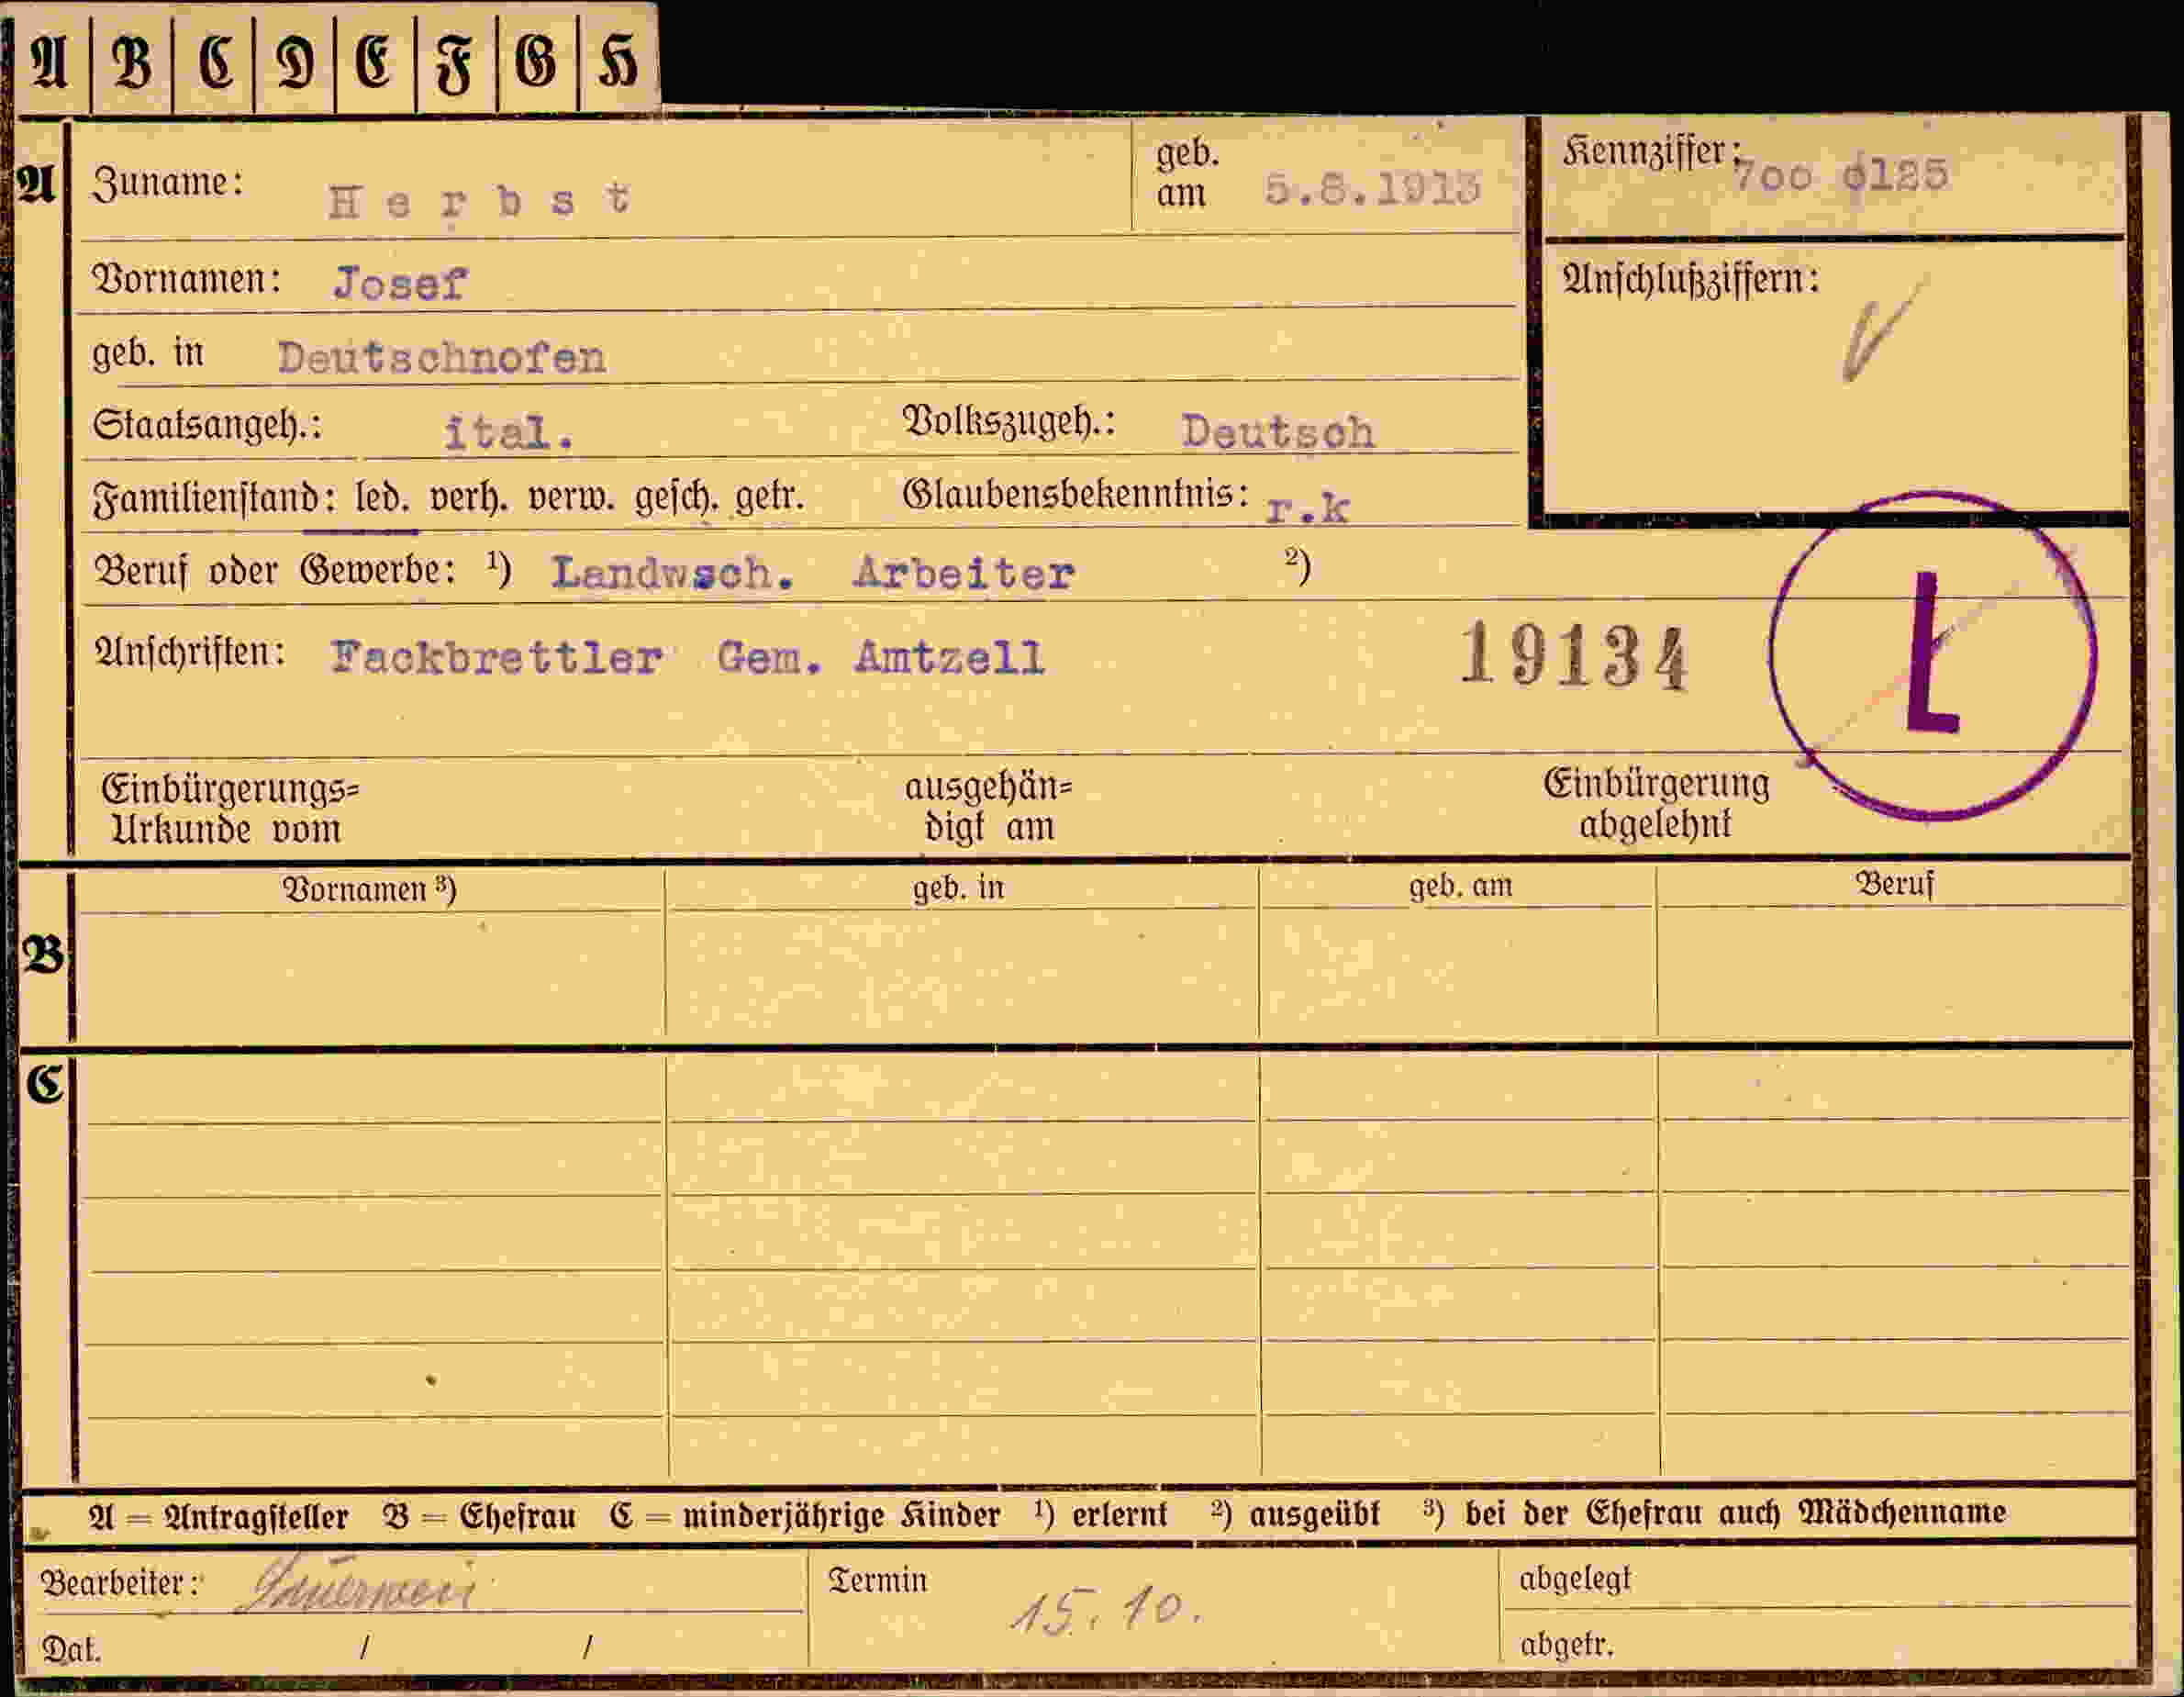 A B C D E F G H
A Zuname: Herbst geb. am 5.8.1913 Kennziffer: 700 6125
Vornamen: Josef Anschlußziffern:
geb. in Deutschnofen
Staatsangeh.: ital. Volkszugeh.: Deutsch
Familienstand: led. verh. verw. gesch. getr. Glaubensbekenntnis: r.k
Beruf oder Gewerbe: ¹) Landwsch. Arbeiter ²)
Anschriften: Fackbrettler Gem. Amtzell 19134 L
Einbürgerungs= ausgehän= Einbürgerung
Urkunde vom digt am abgelehnt
Vornamen ³) geb. in geb. am Beruf
B
C
A = Antragsteller B = Ehefrau C = minderjährige Kinder ¹) erlernt ²) ausgeübt ³) bei der Ehefrau auch Mädchenname
Bearbeiter: Termin 15.10. abgelegt
Dat. / / abgetr.